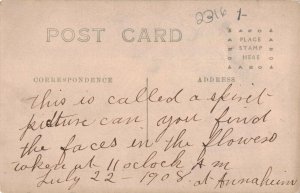 2316 1-
POST CARD
PLACE
STAMP
HERE
CORRESPONDENCE
ADDRESS
this is called a spirit
picture can you find
the faces in the flowers
taken at 11 oclock A m
July 22 - 1908 at Annaheim